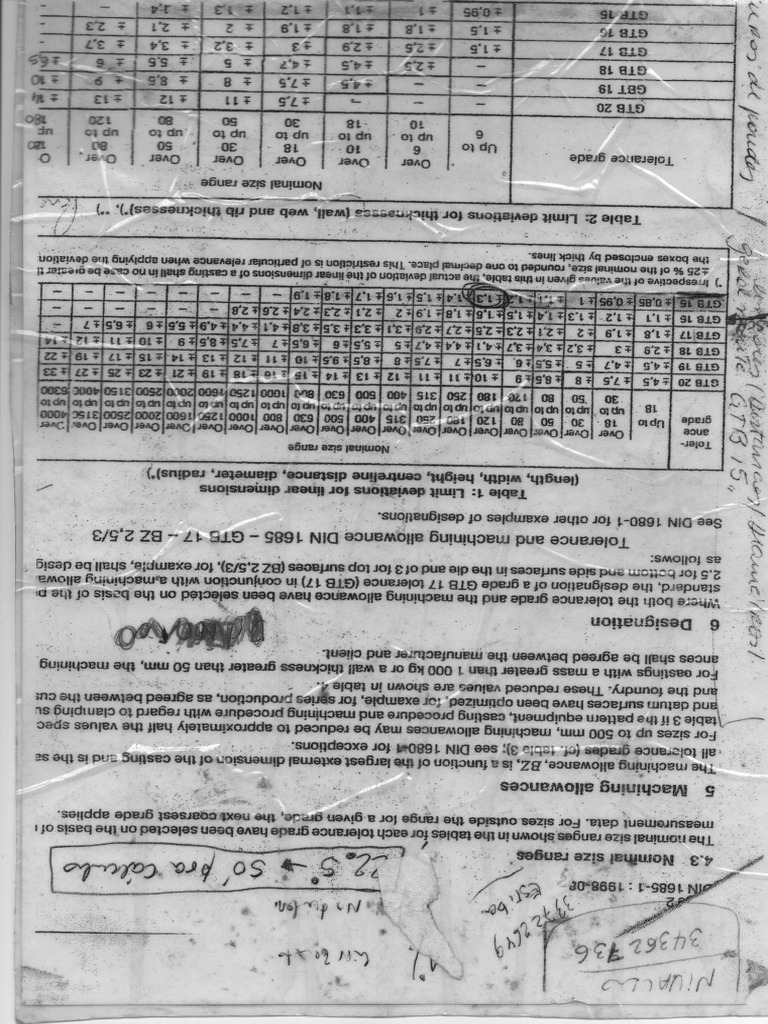 NIVALDO
34362736
39722649
Estiba
22,5° → Só pra cálculo
DIN 1685-1 : 1998-08
4.3 Nominal size ranges
The nominal size ranges shown in the tables for each tolerance grade have been selected on the basis of
measurement data. For sizes outside the range for a given grade, the next coarsest grade applies.
5 Machining allowances
The machining allowance, BZ, is a function of the largest external dimension of the casting and is the sa
all tolerance grades (cf. table 3); see DIN 1680-1 for exceptions.
For sizes up to 500 mm, machining allowances may be reduced to approximately half the values spec
table 3 if the pattern equipment, casting procedure and machining procedure with regard to clamping su
and datum surfaces have been optimized, for example, for series production, as agreed between the cus
and the foundry. These reduced values are shown in table 4.
For castings with a mass greater than 1 000 kg or a wall thickness greater than 50 mm, the machining
ances shall be agreed between the manufacturer and client.
6 Designation
Where both the tolerance grade and the machining allowance have been selected on the basis of the p
standard, the designation of a grade GTB 17 tolerance (GTB 17) in conjunction with a machining allowa
2,5 for bottom and side surfaces in the die and of 3 for top surfaces (BZ 2,5/3), for example, shall be desig
as follows:
Tolerance and machining allowance DIN 1685 – GTB 17 – BZ 2,5/3
See DIN 1680-1 for other examples of designations.
Table 1: Limit deviations for linear dimensions
(length, width, height, centreline distance, diameter, radius)*)
Toler-
ance
grade
Nominal size range
Up to 18 Over 18 up to 30 Over 30 up to 50 Over 50 up to 80 Over 80 up to 120 Over 120 up to 180 Over 180 up to 250 Over 250 up to 315 Over 315 up to 400 Over 400 up to 500 Over 500 up to 630 Over 630 up to 800 Over 800 up to 1000 Over 1000 up to 1250 Over 1250 up to 1600 Over 1600 up to 2000 Over 2000 up to 2500 Over 2500 up to 3150 Over 3150 up to 4000 Over 4000 up to 6300
GTB 20 ± 4,5 ± 7,5 ± 8 ± 8,5 ± 9 ± 10 ± 11 ± 11 ± 12 ± 13 ± 14 ± 15 ± 16 ± 18 ± 19 ± 21 ± 23 ± 25 ± 27 ± 33
GTB 19 ± 4,5 ± 4,7 ± 5 ± 5,5 ± 6 ± 6,5 ± 7 ± 7,5 ± 8 ± 8,5 ± 9,5 ± 10 ± 11 ± 12 ± 13 ± 14 ± 15 ± 17 ± 19 ± 22
GTB 18 ± 2,9 ± 3 ± 3,2 ± 3,4 ± 3,7 ± 4,1 ± 4,4 ± 4,7 ± 5 ± 5,5 ± 6 ± 6,5 ± 7 ± 7,5 ± 8,5 ± 9 ± 10 ± 11 ± 12 ± 14
GTB 17 ± 1,8 ± 1,9 ± 2 ± 2,1 ± 2,3 ± 2,5 ± 2,7 ± 2,9 ± 3,1 ± 3,3 ± 3,5 ± 3,8 ± 4,1 ± 4,4 ± 4,9 ± 5,5 ± 6 ± 6,5 ± 7 –
GTB 16 ± 1,1 ± 1,2 ± 1,3 ± 1,4 ± 1,5 ± 1,6 ± 1,8 ± 1,9 ± 2 ± 2,1 ± 2,3 ± 2,4 ± 2,6 ± 2,8 – – – – – –
GTB 15 ± 0,85 ± 0,95 ± 1 ± 1,1 ± 1,2 ± 1,3 ± 1,4 ± 1,5 ± 1,6 ± 1,7 ± 1,8 ± 1,9 – – – – – – –
*) Irrespective of the values given in this table, the actual deviation of the linear dimensions of a casting shall in no case be greater t
±25 % of the nominal size, rounded to one decimal place. This restriction is of particular relevance when applying the deviation
the boxes enclosed by thick lines.
Table 2: Limit deviations for thicknesses (wall, web and rib thicknesses)*), **)
Tolerance grade
Nominal size range
Up to 6 Over 6 up to 10 Over 10 up to 18 Over 18 up to 30 Over 30 up to 50 Over 50 up to 80 Over 80 up to 120 O 120 up 180
GTB 20 – – – ± 7,5 ± 11 ± 12 ± 13 ± 14
GBT 19 – – ± 4,5 ± 7,5 ± 8 ± 8,5 ± 9 ± 10
GTB 18 – ± 2,5 ± 4,5 ± 4,7 ± 5 ± 5,5 ± 6 ± 6,5
GTB 17 ± 1,5 ± 2,5 ± 2,9 ± 3 ± 3,2 ± 3,4 ± 3,7 –
GTB 16 ± 1,5 ± 1,8 ± 1,8 ± 1,9 ± 2 ± 2,1 ± 2,3 –
GTB 15 ± 0,95 ± 1 ± 1,1 ± 1,2 ± 1,3 ± 1,4 – –
GTB 15"